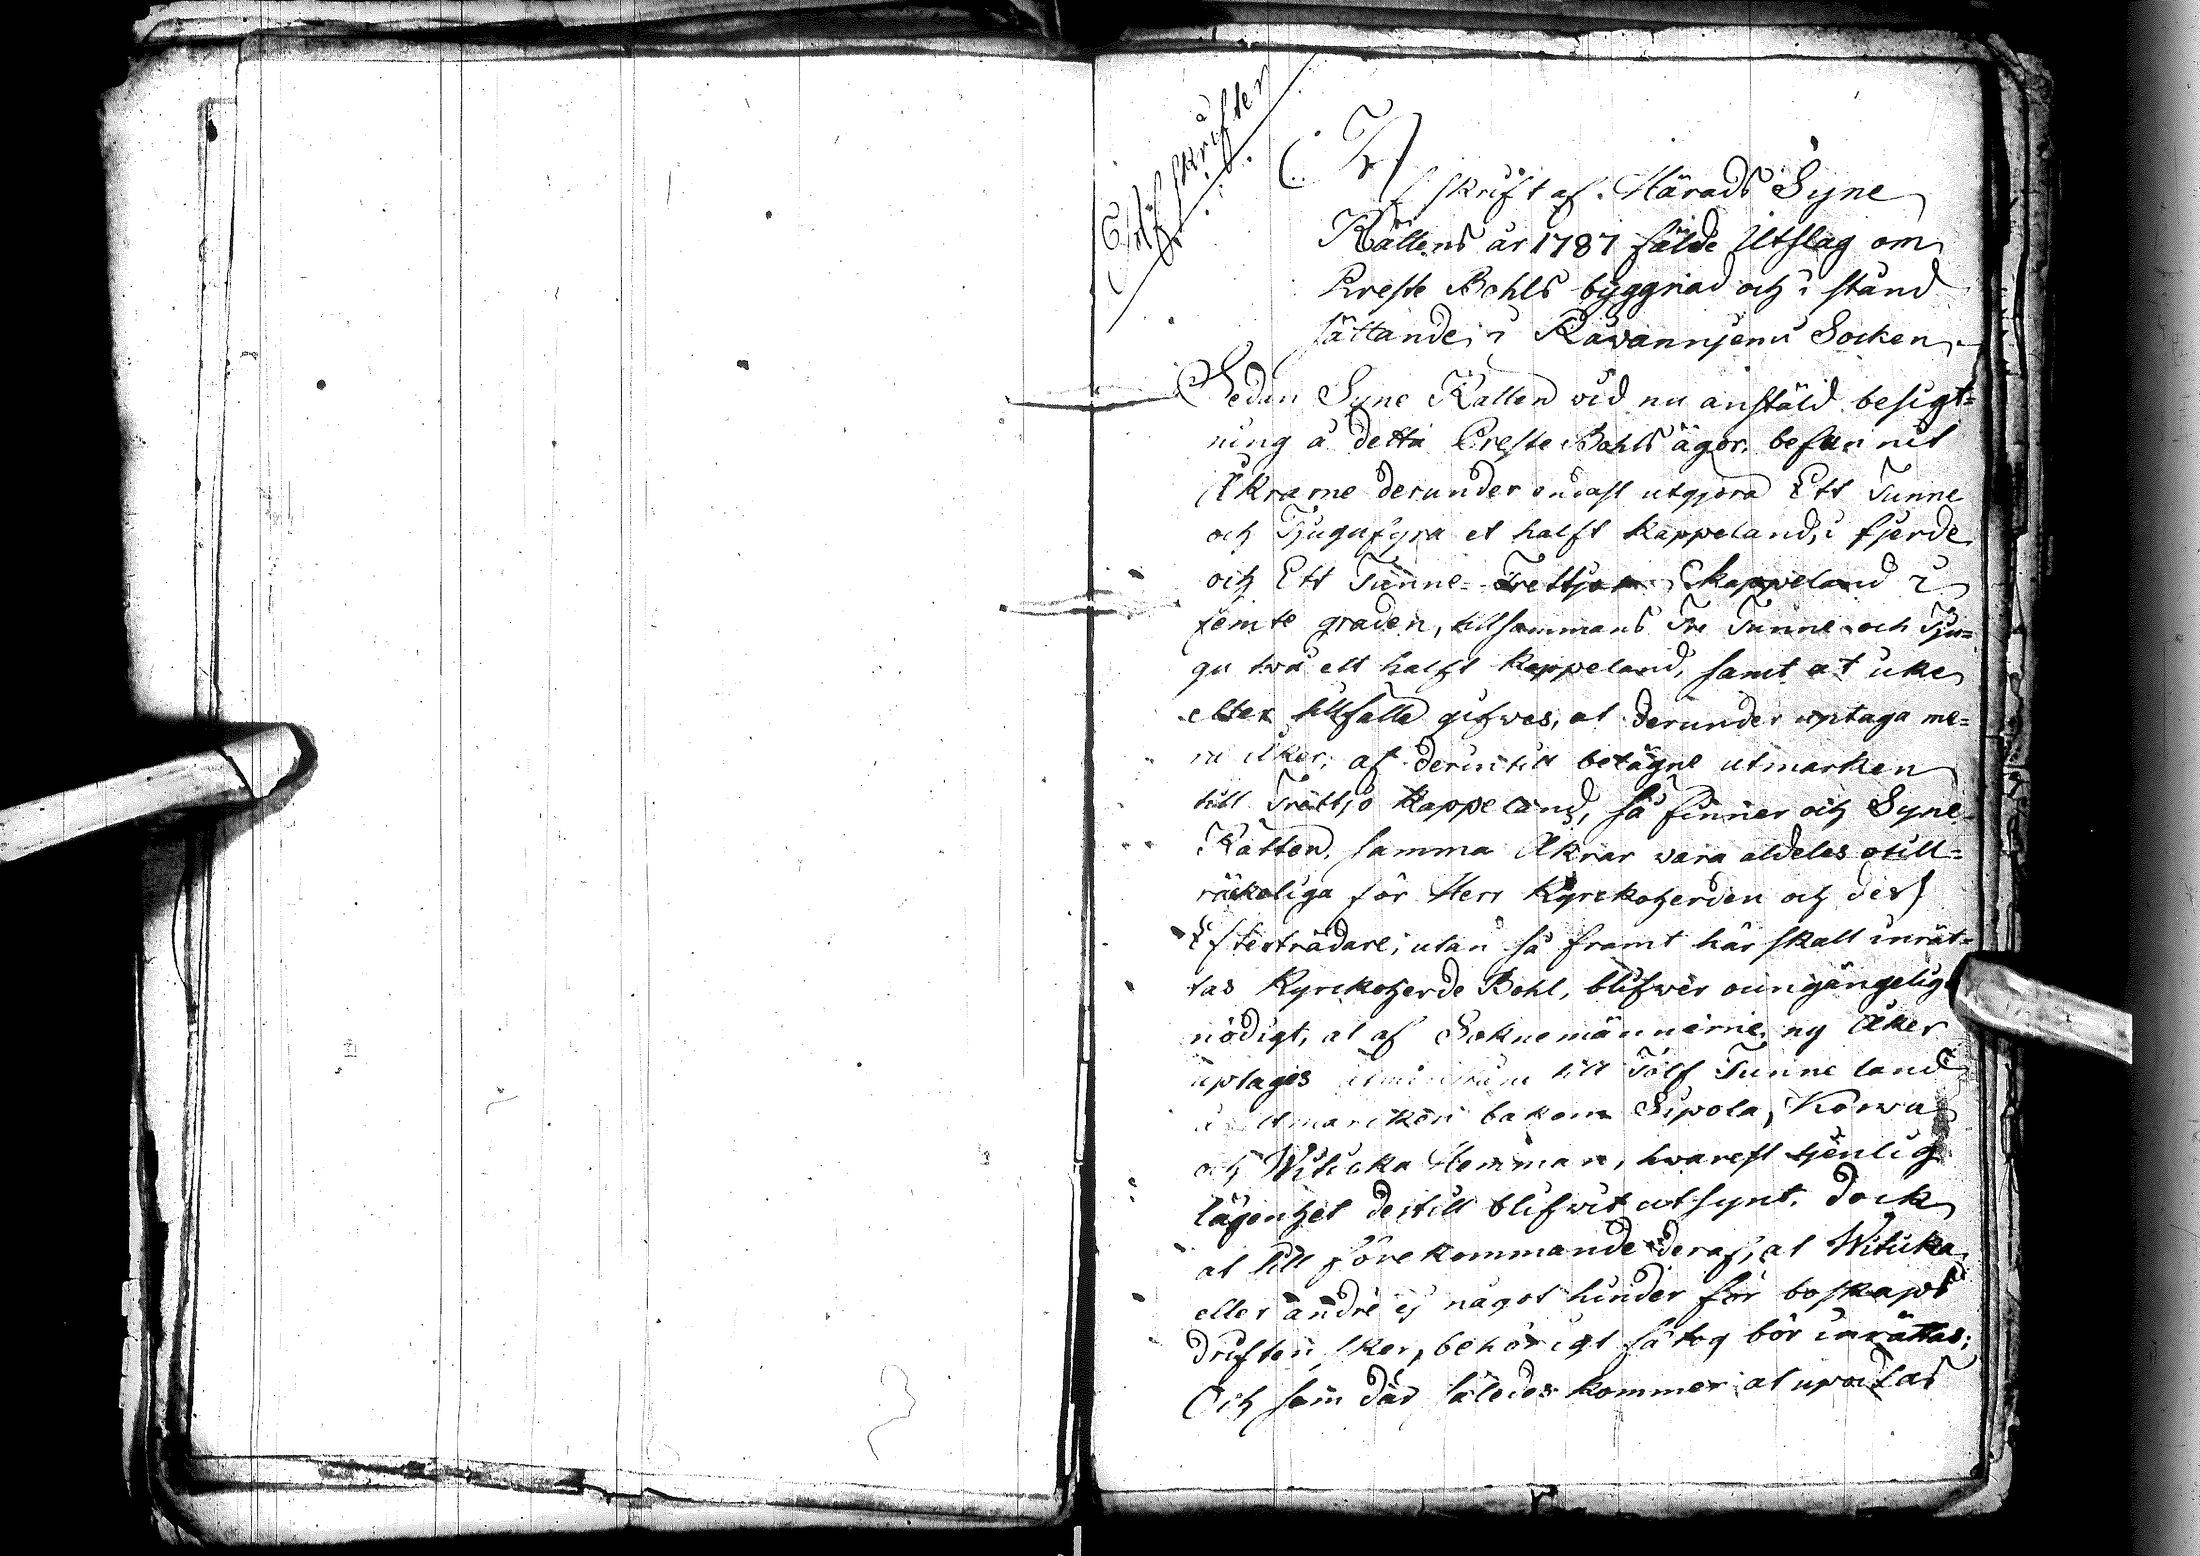 Afskrifter
Afskrift af Härads Syne
Rättens år 1787 fälde Utslag om
Preste Bohls byggnad och i stånd
sättande i Råwanniemi Socken.
Sedan Syne Rätten vid nu anstäld besigt=
ning å detta Preste Bohls ägor, befunnit
Åkrarne derunder endast utgjöra Ett Tunne
och Tjugufyra et halft kappeland, i fjerde
och Ett Tunne Trettjo kappeland i
femte graden, tillsammans Tre Tunne och Tju=
gu två ett halft kappeland, samt at icke
eller tillfälle gifwes, at derunder uptaga me=
ra åker, af derintill belägne utmarken
till Trettjo kappeland, så finner och Syne
Rätten, samma Åkrar vara aldeles otill=
räckeliga för Herr Kyrckoherden och dess
Efterträdare; utan så framt här skall inrät=
tas Kyrckoherde Bohl, blifwer oungängelig
nödigt, at af Soknemännerne ny Åker
uptages till Tolf Tunne land
i utmarcken bakom Sipola, Korwa
och Witicka Hemman, hwarest tjenlig
lägenhet dertill blifwit utsynt. Dock
at till förekommande deraf, at Witicka
eller andre ej något hinder för boskaps
driften sker, behörigt fä tog bör inrättas;
Och som där således kommer at uptas